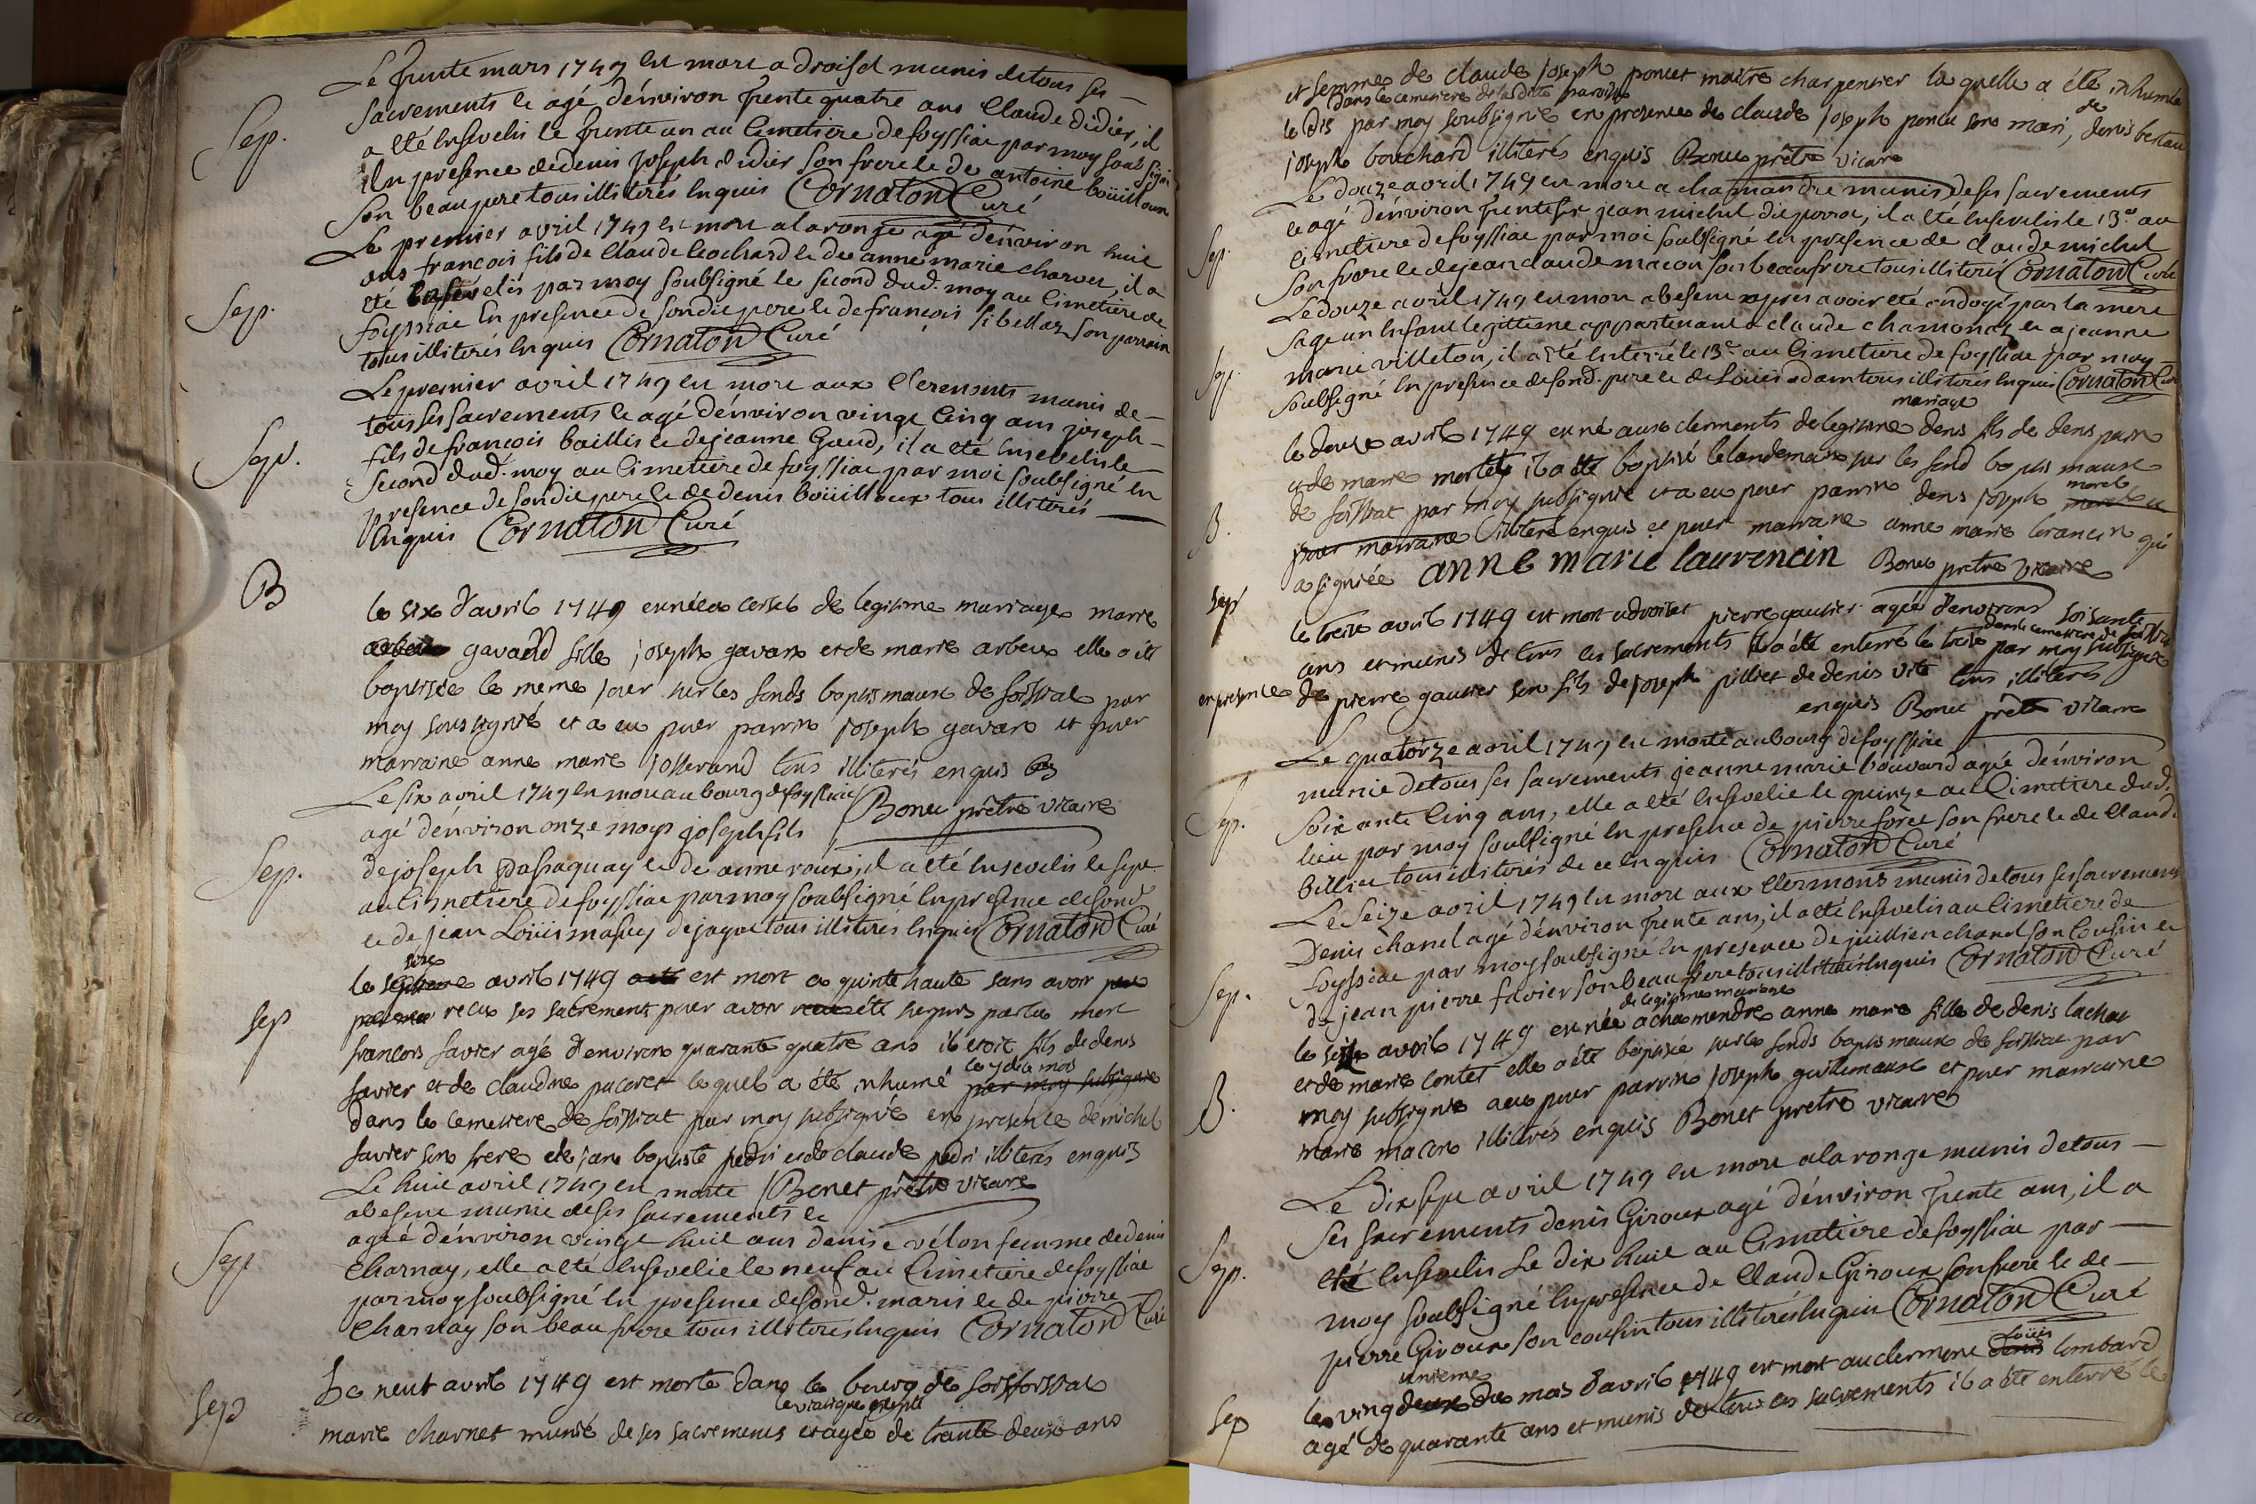 Le trente mars 1749 est mort a droiset munis de tous ses
Sep. sacrements et agé d'environ trente quatre ans Claude didier, il
a eté ensevelis le trente un au Cimetiere de foyssiac par moy soubsigné
En presence de denis joseph didier son frere et de antoine boüilloux
son beau pere tous illiterés Enquis Cornaton Curé
Le premier avril 1749 est mort a la ronge agé d'environ huit
ans francois fils de Claude Cochard et de anne marie charvet, il a
Sep. eté Ensevelis par moy soubsigné le second dud. moy au Cimetiere de
foyssiac En presence de son dit pere et de françois sibellas son parrain
tous illiterés Enquis Cornaton Curé
Le premier avril 1749 est mort aux Clermonts munis de
tous ses sacrements et agé d'environ vingt Cinq ans joseph
Sep. fils de françois baillis et de jeanne Gaud, il a eté Ensevelis le
second dud. moy au Cimetiere de foyssiac par moi soubsigné En
presence de son dit pere et de denis boüilloux tous illiterés
Enquis Cornaton Curé
B le six d'avril 1749 est née a cerset de legitime mariage marie
gavand fille joseph gavan et de marie arbeux elle a été
baptisée le meme jour sur les fonds baptismaux de foissiat par
moy soussigné et a eu pour parrin joseph gavan et pour
marraine anne marie josserand tous illiterés enquis
Le six avril 1749 est mort au bourg de foyssiac Bonet prêtre vicaire
agé d'environ onze moys joseph fils
Sep. de joseph Passaquay et de anne roux, il a eté Ensevelis le sept
au Cimetiere de foyssiac par moy soubsigné En presence de son d.
et de jean Loüis masuy de jayat tous illiterés Enquis Cornaton Curé
six
le avril 1749 est mort a quinte haute sans avoir
Sep recu ses sacrement pour avoir été surpris par la mort
francois favier agé d'environ quarante quatre ans il etoit fils de denis
le 7 du d. mois
favier et de claudine pacoret lequel a été inhumé par moy subsigné
dans le cemetiere de foissiat par moy subsigné en presence de michel
favier son frere et de jan baptiste pedri et de claude pedri illiteres enquis
Le huit avril 1749 est morte Bonet prêtre vicaire
a besene munie de ses sacrements et
Sep agée d'environ vingt huit ans denise vélon femme de denis
Charnay, elle a eté Ensevelie le neuf au Cimetiere de foyssiac
par moy soubsigné En presence de son d. maris et de pierre
Charnay son beau frere tous illiterés Enquis Cornaton Curé
Sep Le neuf avril 1749 est morte dans le bourg de foissiat
le viatique excepté
marie charnet munie de ses sacrements et agée de trante deux ans
et femme de claude joseph poncet maitre charpentier la quelle a été inhumée
dans le cemetiere de la dite paroisse
le dis par moy soubsigné en presence de claude joseph poncet son mari, de denis
joseph bouchard illiterés enquis Bonet prêtre vicaire
Le douze avril 1749 est mort a chamandre munis de ses sacrements
et agé d'environ trente six jean michel dit perrot, il a eté Ensevelis le 13e au
Sep. Cimetiere de foyssiac par moi soubsigné En presence de claude michel
son frere et de jean claude macon son beau frere tous illiterés Cornaton Curé
Le douze avril 1749 est mort a besene apres avoir eté ondoyé par la mere
sage un Enfant legittime appartenant a claude chamonaz et a jeanne
Sep. marie villeton, il a eté Enterré le 13e au Cimetiere de foyssiac par moy
soubsigné En presence de son d. pere et de Loüis adam tous illiterés Enquis Cornaton Curé
mariage
le douse avril 1749 est né aux clermonts de legitime denis fils de denis
et de marie mortel il a été baptisé le landemain sur les fond baptis maux
morel
de foissiat par moy subsigné et a eu pour parrin denis joseph
B. pour marraine illiteré enquis et pour marraine anne marie lorancin qui
a signée anne marie laurencin Bonet prêtre vicaire
Sep le treise avril 1749 est mort a droiset pierre gautier agée d'environ soisante
dans le cemetiere de foissiat
ans et munis de tous les sacrements il a été enterré le treise par moy subsigné
en presence de pierre gautier son fils de joseph pilliet de denis vite tous illiteres
enquis Bonet prêtre vicaire
Le quatorze avril 1749 est morte au bourg de foyssiac
munie de tous ses sacrements jeanne marie bouvard agée d'environ
Sep. soixante Cinq ans, elle a eté Ensevelie le quinze au Cimetiere dud.
lieu par moy soubsigné En presence de pierre forêt son frere et de Claude
billiet tous illiterés de ce Enquis Cornaton Curé
Le Seize avril 1749 est mort aux Clermons munis de tous ses sacrements
Denis chanel agé d'environ trente ans, il a eté Ensevelis au Cimetiere de
Sep. foyssiac par moy soubsigné En presence de juillien chanel son Cousin et
de jean pierre favier son beau frere tous illiterés Enquis Cornaton Curé
de legitime mariage
le seise avril 1749 est née a chamendre anne marie fille de denis lachat
et de marie contet elle a été baptisée sur les fonds baptismaux de foissiat par
B. moy subsigné a eu pour parrin joseph guillimaux et pour marraine
marie macon illiterés enquis Bonet pretre vicaire
Le dix sept avril 1749 est mort a la ronge munis de tous
ses sacrements denis Giroux agé d'environ trente ans, il a
Sep. eté Ensevelis Le dix huit au Cimetiere de foyssiac par
moy soubsigné En presence de Claude Giroux son frere et de
pierre Giroux son cousin tous illiterés Enquis Cornaton Curé
unieme Loüis
le ving deux du mois d'avril 1749 est mort au clermont denis lombard
Sep agé de quarante ans et munis de tous les sacrements il a été enterré le